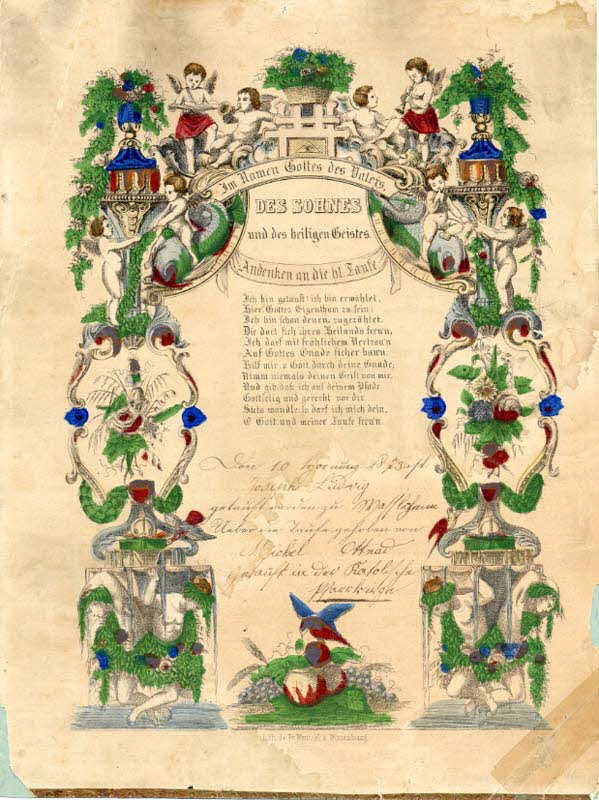 Im Namen Gottes des Vaters,
DES SOHNES
und des heiligen Geistes
Andenken an die hl. Taufe
Ich bin getauft: ich bin erwählet,
Hier Gottes Eigenthum zu sein:
Ich bin schon denen zugezählet,
Die dort sich ihres Heilands freu'n.
Ich darf mit fröhlichem Vertrau'n
Auf Gottes Gnade sicher bau'n.
Hilf mir, o Gott, durch deine Gnade;
Nimm niemals deinen Geist von mir,
Und gib, daß ich auf deinem Pfade
Gottselig und gerecht vor dir
Stets wandle, so darf ich mich dein,
O Gott, und meiner Taufe freu'n
Den 10 Hornung 1873 ist
Joseph Ludwig
getauft worden zu
Ueber die Taufe gehoben von
Michel Ottnad
Getauft in der
Lith. de Fr. Wentzel à Wissembourg